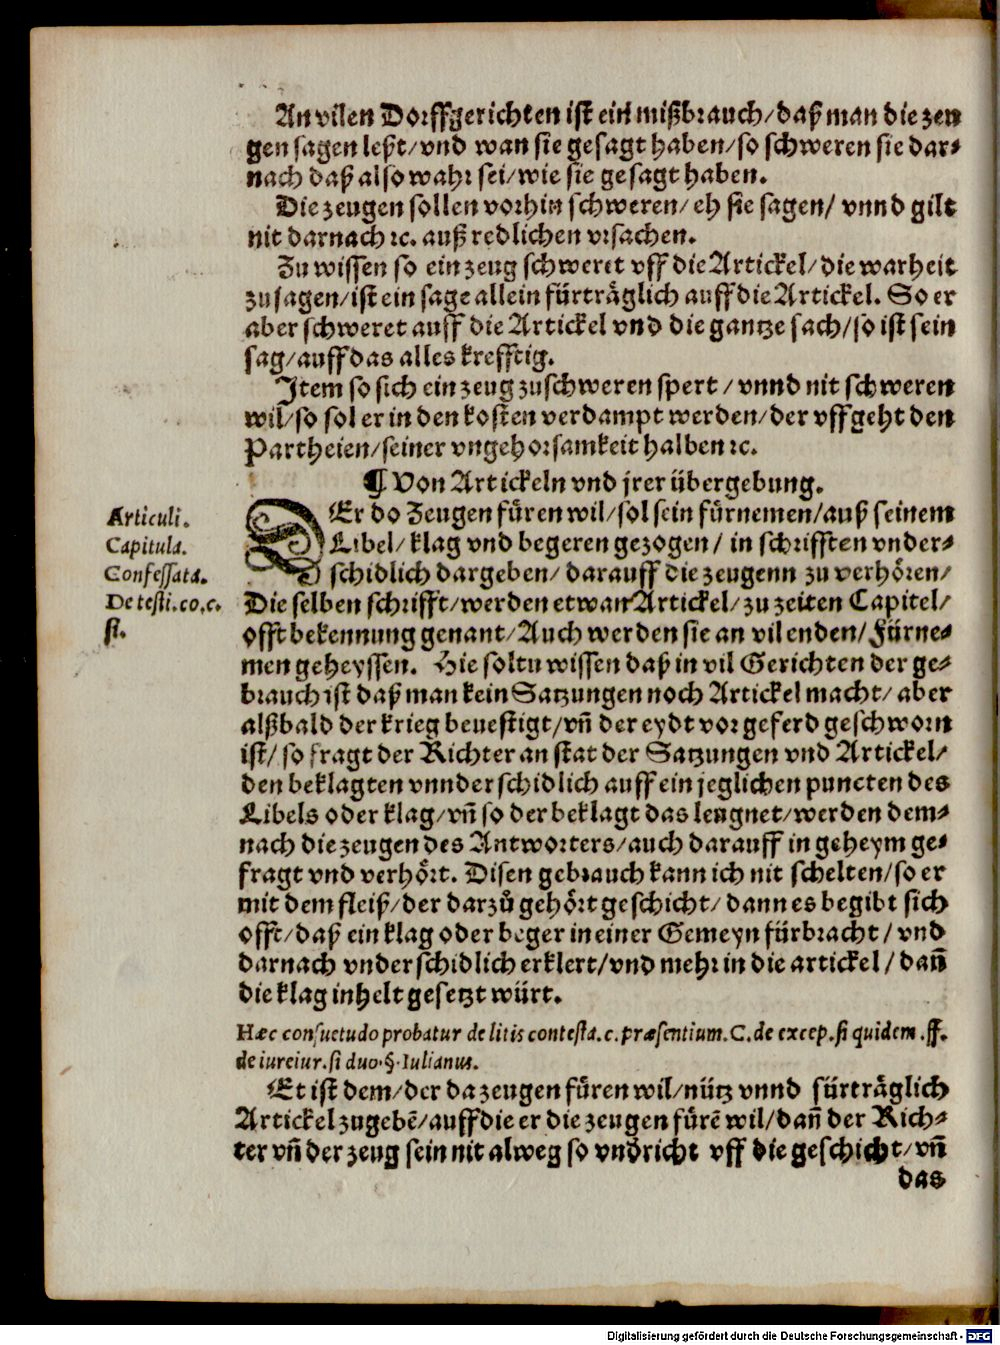 An vilen Dorffgerichten ist ein mißbrauch/daß man die zeu
gen sagen leßt/vnd wan sie gesagt haben/so schweren sie dar⸗
nach daß also wahr sei/wie sie gesagt haben.
Die zeugen sollen vorhin schweren/eh sie sagen/ vnnd gilt
nit darnach ꝛc. auß redlichen vrsachen.
Zu wissen so ein zeug schweret vff die Artickel/die warheit
zusagen/ist ein sage allein fürträglich auff die Artickel. So er
aber schweret auff die Artickel vnd die gantze sach/so ist sein
sag/auff das alles krefftig.
Item so sich ein zeug zuschweren spert / vnnd nit schweren
wil/so sol er in den kosten verdampt werden/der vffgeht den
Partheien/seiner vngehorsamkeit halben ꝛc.
¶ Von Artickeln vnd jrer übergebung.
Articuli.
Capitula.
Confessata.
De testi.co.c.
si.
DEr do Zeugen fůren wil/sol sein fürnemen/auß seinem
Libel/ klag vnd begeren gezogen/ in schrifften vnder⸗
schidlich dargeben/ darauff die zeugenn zu verhören/
Die selben schrifft/werden etwan Artickel/zu zeiten Capitel/
offt bekennung genant/Auch werden sie an vil enden/Fürne⸗
men geheyssen. Hie soltu wissen daß in vil Gerichten der ge⸗
brauch ist daß man kein Satzungen noch Artickel macht/ aber
alßbald der krieg beuestigt/vñ der eydt vor geferd geschworn
ist/ so fragt der Richter an stat der Satzungen vnd Artickel/
den beklagten vnnderschidlich auff ein jeglichen puncten des
Libels oder klag/vñ so der beklagt das leugnet/werden dem⸗
nach die zeugen des Antworters/auch darauff in geheym ge⸗
fragt vnd verhört. Disen gebrauch kann ich nit schelten/so er
mit dem fleiß/der darzů gehört geschicht/ dann es begibt sich
offt/daß ein klag oder beger in einer Gemeyn fürbracht / vnd
darnach vnderschidlich erklert/vnd mehr in die artickel / dañ
die klag inhelt gesetzt würt.
Hæc consuetudo probatur de litis contesta.c.præsentium.C.de excep.si quidem.ff.
de iureiur.si duo.§.Iulianus.
Et ist dem/der da zeugen fůren wil/nütz vnnd fürträglich
Artickel zugebẽ/auff die er die zeugen fůrẽ wil/dañ der Rich⸗
ter vñ der zeug sein nit alweg so vndricht vff die geschicht/vñ
das
Digitalisierung gefördert durch die Deutsche Forschungsgemeinschaft - DFG